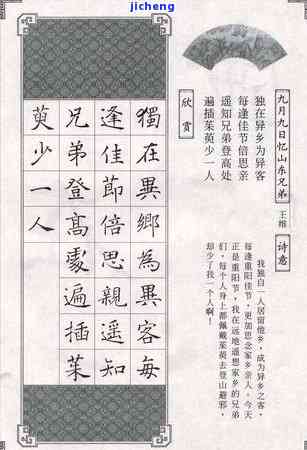 jicheng
九月九日忆山东兄弟
王维
独在异乡为异客
每逢佳节倍思亲
遥知兄弟登高处
遍插茱萸少一人
欣赏
诗意
我独自一人居留他乡，成为异乡之客，
每逢重阳佳节，更加思念家乡亲人。今天
正是重阳节，我在远地遥想家乡的兄弟
们，每个人身上都佩戴茱萸去登山避邪，
却少了我一个人啊！
獨在異鄉為異客每
逢佳節倍思親遥知
兄弟登髙處遍插茱
萸少一人